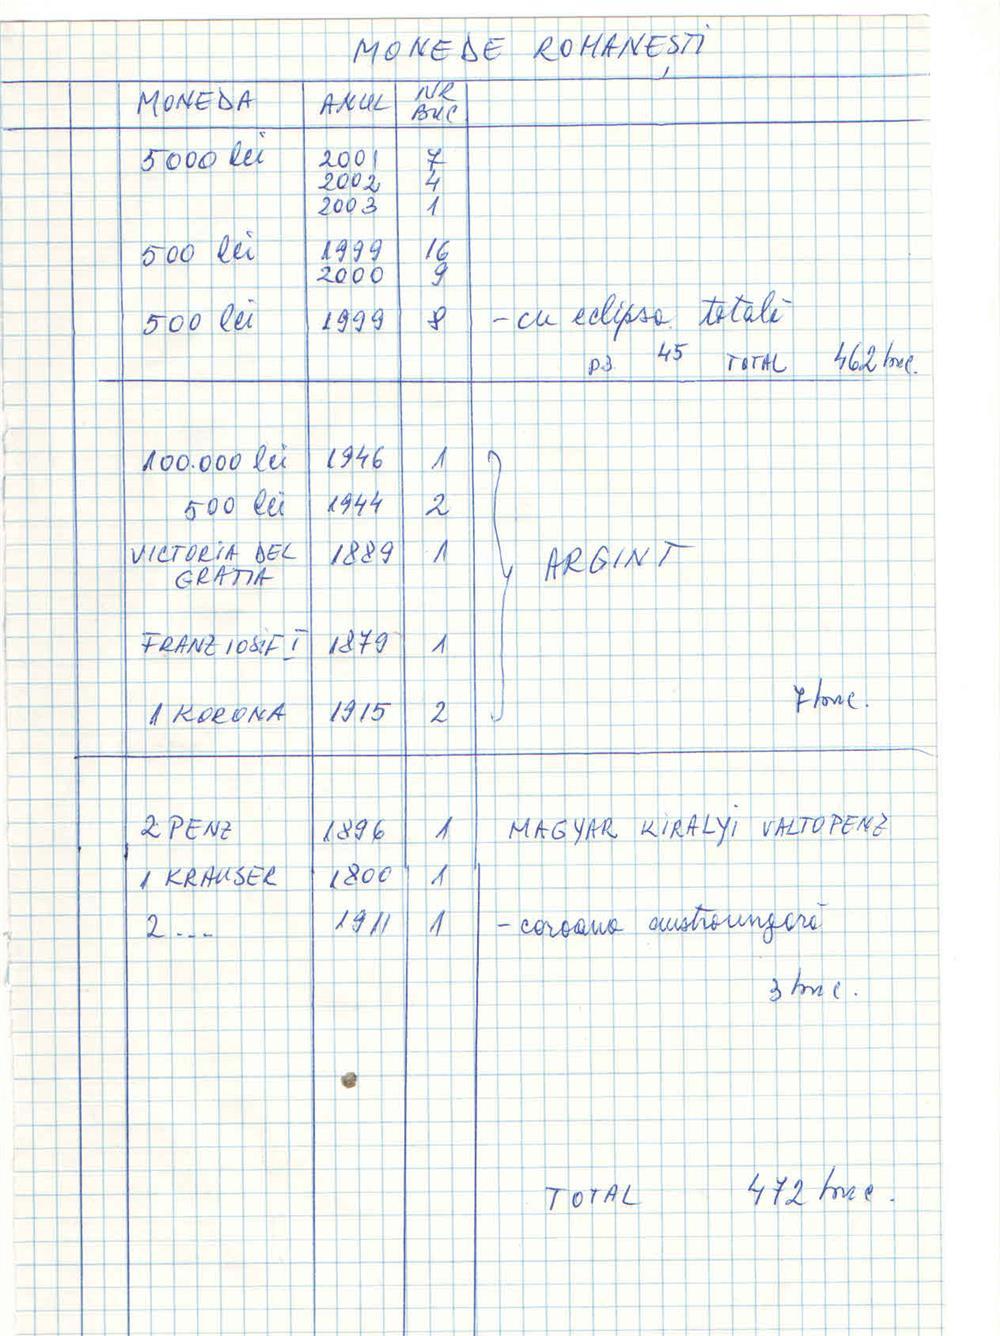 MONEDE ROMANEȘTI
MONEDA ANUL NR BUC
5000 lei 2001 7
2002 4
2003 1
500 lei 1999 16
2000 9
500 lei 1999 8 - cu eclipsa totală
p3 45 TOTAL 462 buc.
100.000 lei 1946 1
500 lei 1944 2
VICTORIA DEL GRATIA 1889 1
ARGINT
FRANZ IOSIF I 1879 1
1 KORONA 1915 2
7 buc.
2 PENZ 1896 1 MAGYAR KIRALYI VALTOPENZ
1 KRAUSER 1800 1
2 ... 1911 1 - coroana austroungară
3 buc.
TOTAL 472 buc.